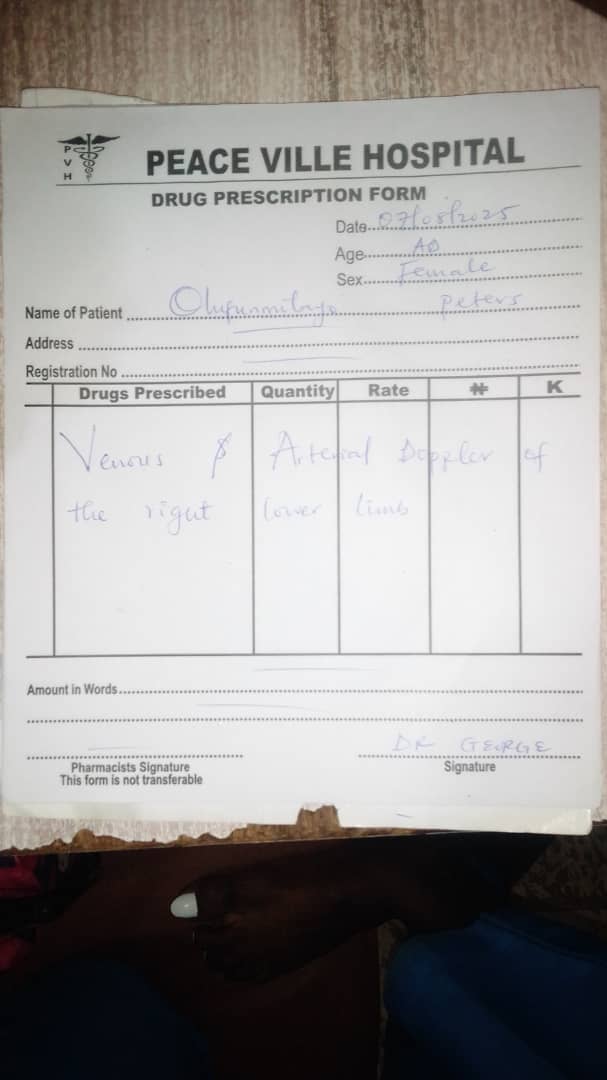 P
V
H
PEACE VILLE HOSPITAL
DRUG PRESCRIPTION FORM
Date 07/08/2025
Age AD
Sex Female
Name of Patient Olufunmilayo Peters
Address
Registration No
Drugs Prescribed Quantity Rate ₦ K
Venous & Arterial Doppler of
the right lower limb
Amount in Words
DR GEORGE
Pharmacists Signature Signature
This form is not transferable